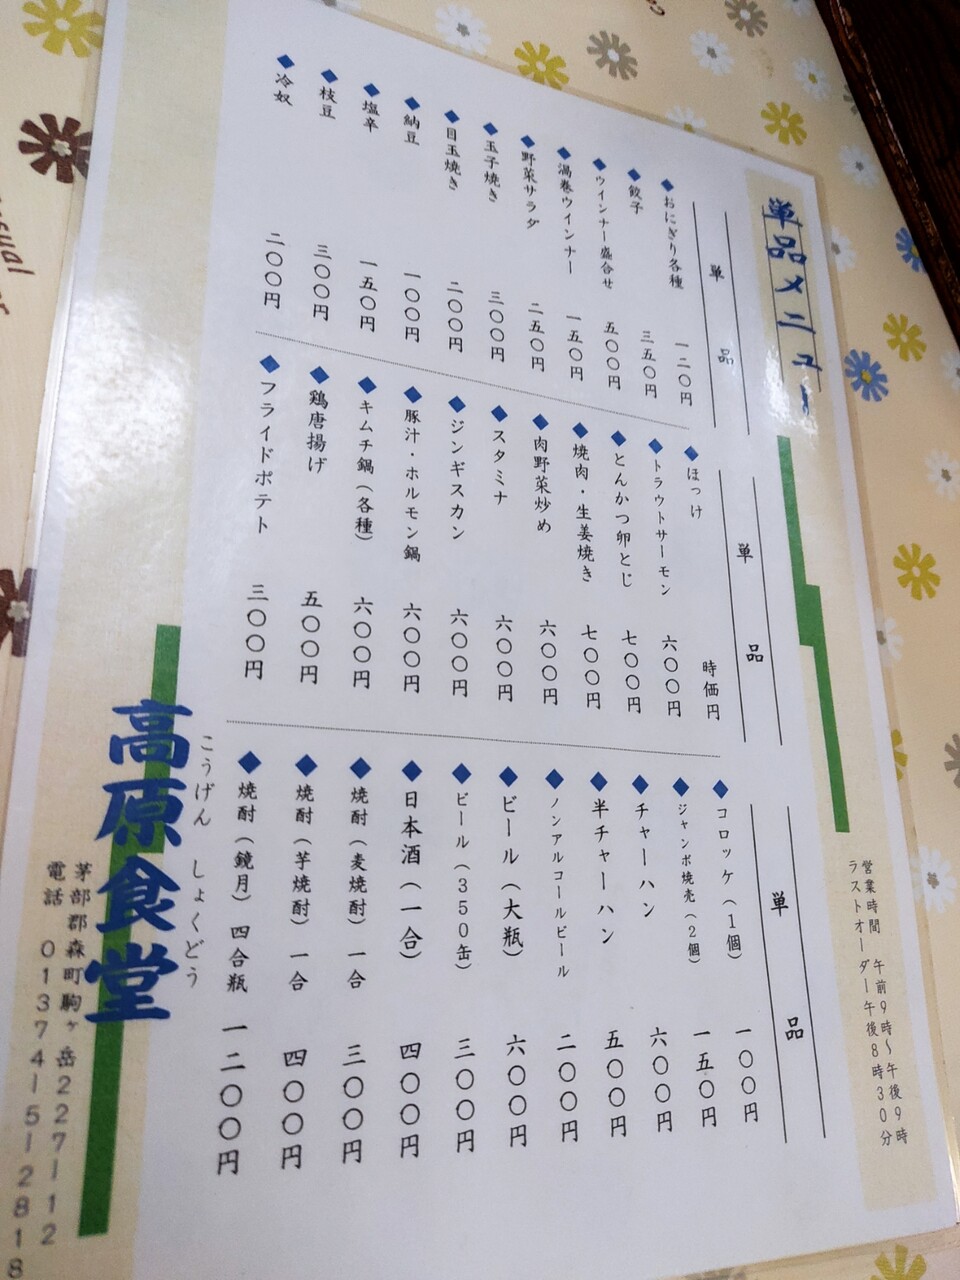 単品メニュー
営業時間 午前9時〜午後9時
ラストオーダー午後8時30分
単品
◆おにぎり各種 一二〇円
◆餃子 三五〇円
◆ウインナー盛合せ 五〇〇円
◆渦巻ウインナー 一五〇円
◆野菜サラダ 二五〇円
◆玉子焼き 三〇〇円
◆目玉焼き 二〇〇円
◆納豆 一〇〇円
◆塩辛 一五〇円
◆枝豆 三〇〇円
◆冷奴 二〇〇円
単品
◆ほっけ 時価円
◆トラウトサーモン 六〇〇円
◆とんかつ卵とじ 七〇〇円
◆焼肉・生姜焼き 七〇〇円
◆肉野菜炒め 六〇〇円
◆スタミナ 六〇〇円
◆ジンギスカン 六〇〇円
◆豚汁・ホルモン鍋 六〇〇円
◆キムチ鍋（各種） 六〇〇円
◆鶏唐揚げ 五〇〇円
◆フライドポテト 三〇〇円
単品
◆コロッケ（1個） 一〇〇円
◆ジャンボ焼売（2個） 一五〇円
◆チャーハン 六〇〇円
◆半チャーハン 五〇〇円
◆ノンアルコールビール 二〇〇円
◆ビール（大瓶） 六〇〇円
◆ビール（350缶） 三〇〇円
◆日本酒（一合） 四〇〇円
◆焼酎（麦焼酎）一合 三〇〇円
◆焼酎（芋焼酎）一合 四〇〇円
◆焼酎（鏡月）四合瓶 一二〇〇円
こうげん しょくどう
高原食堂
茅部郡森町駒ヶ岳227-12
電話 01374-5-2818